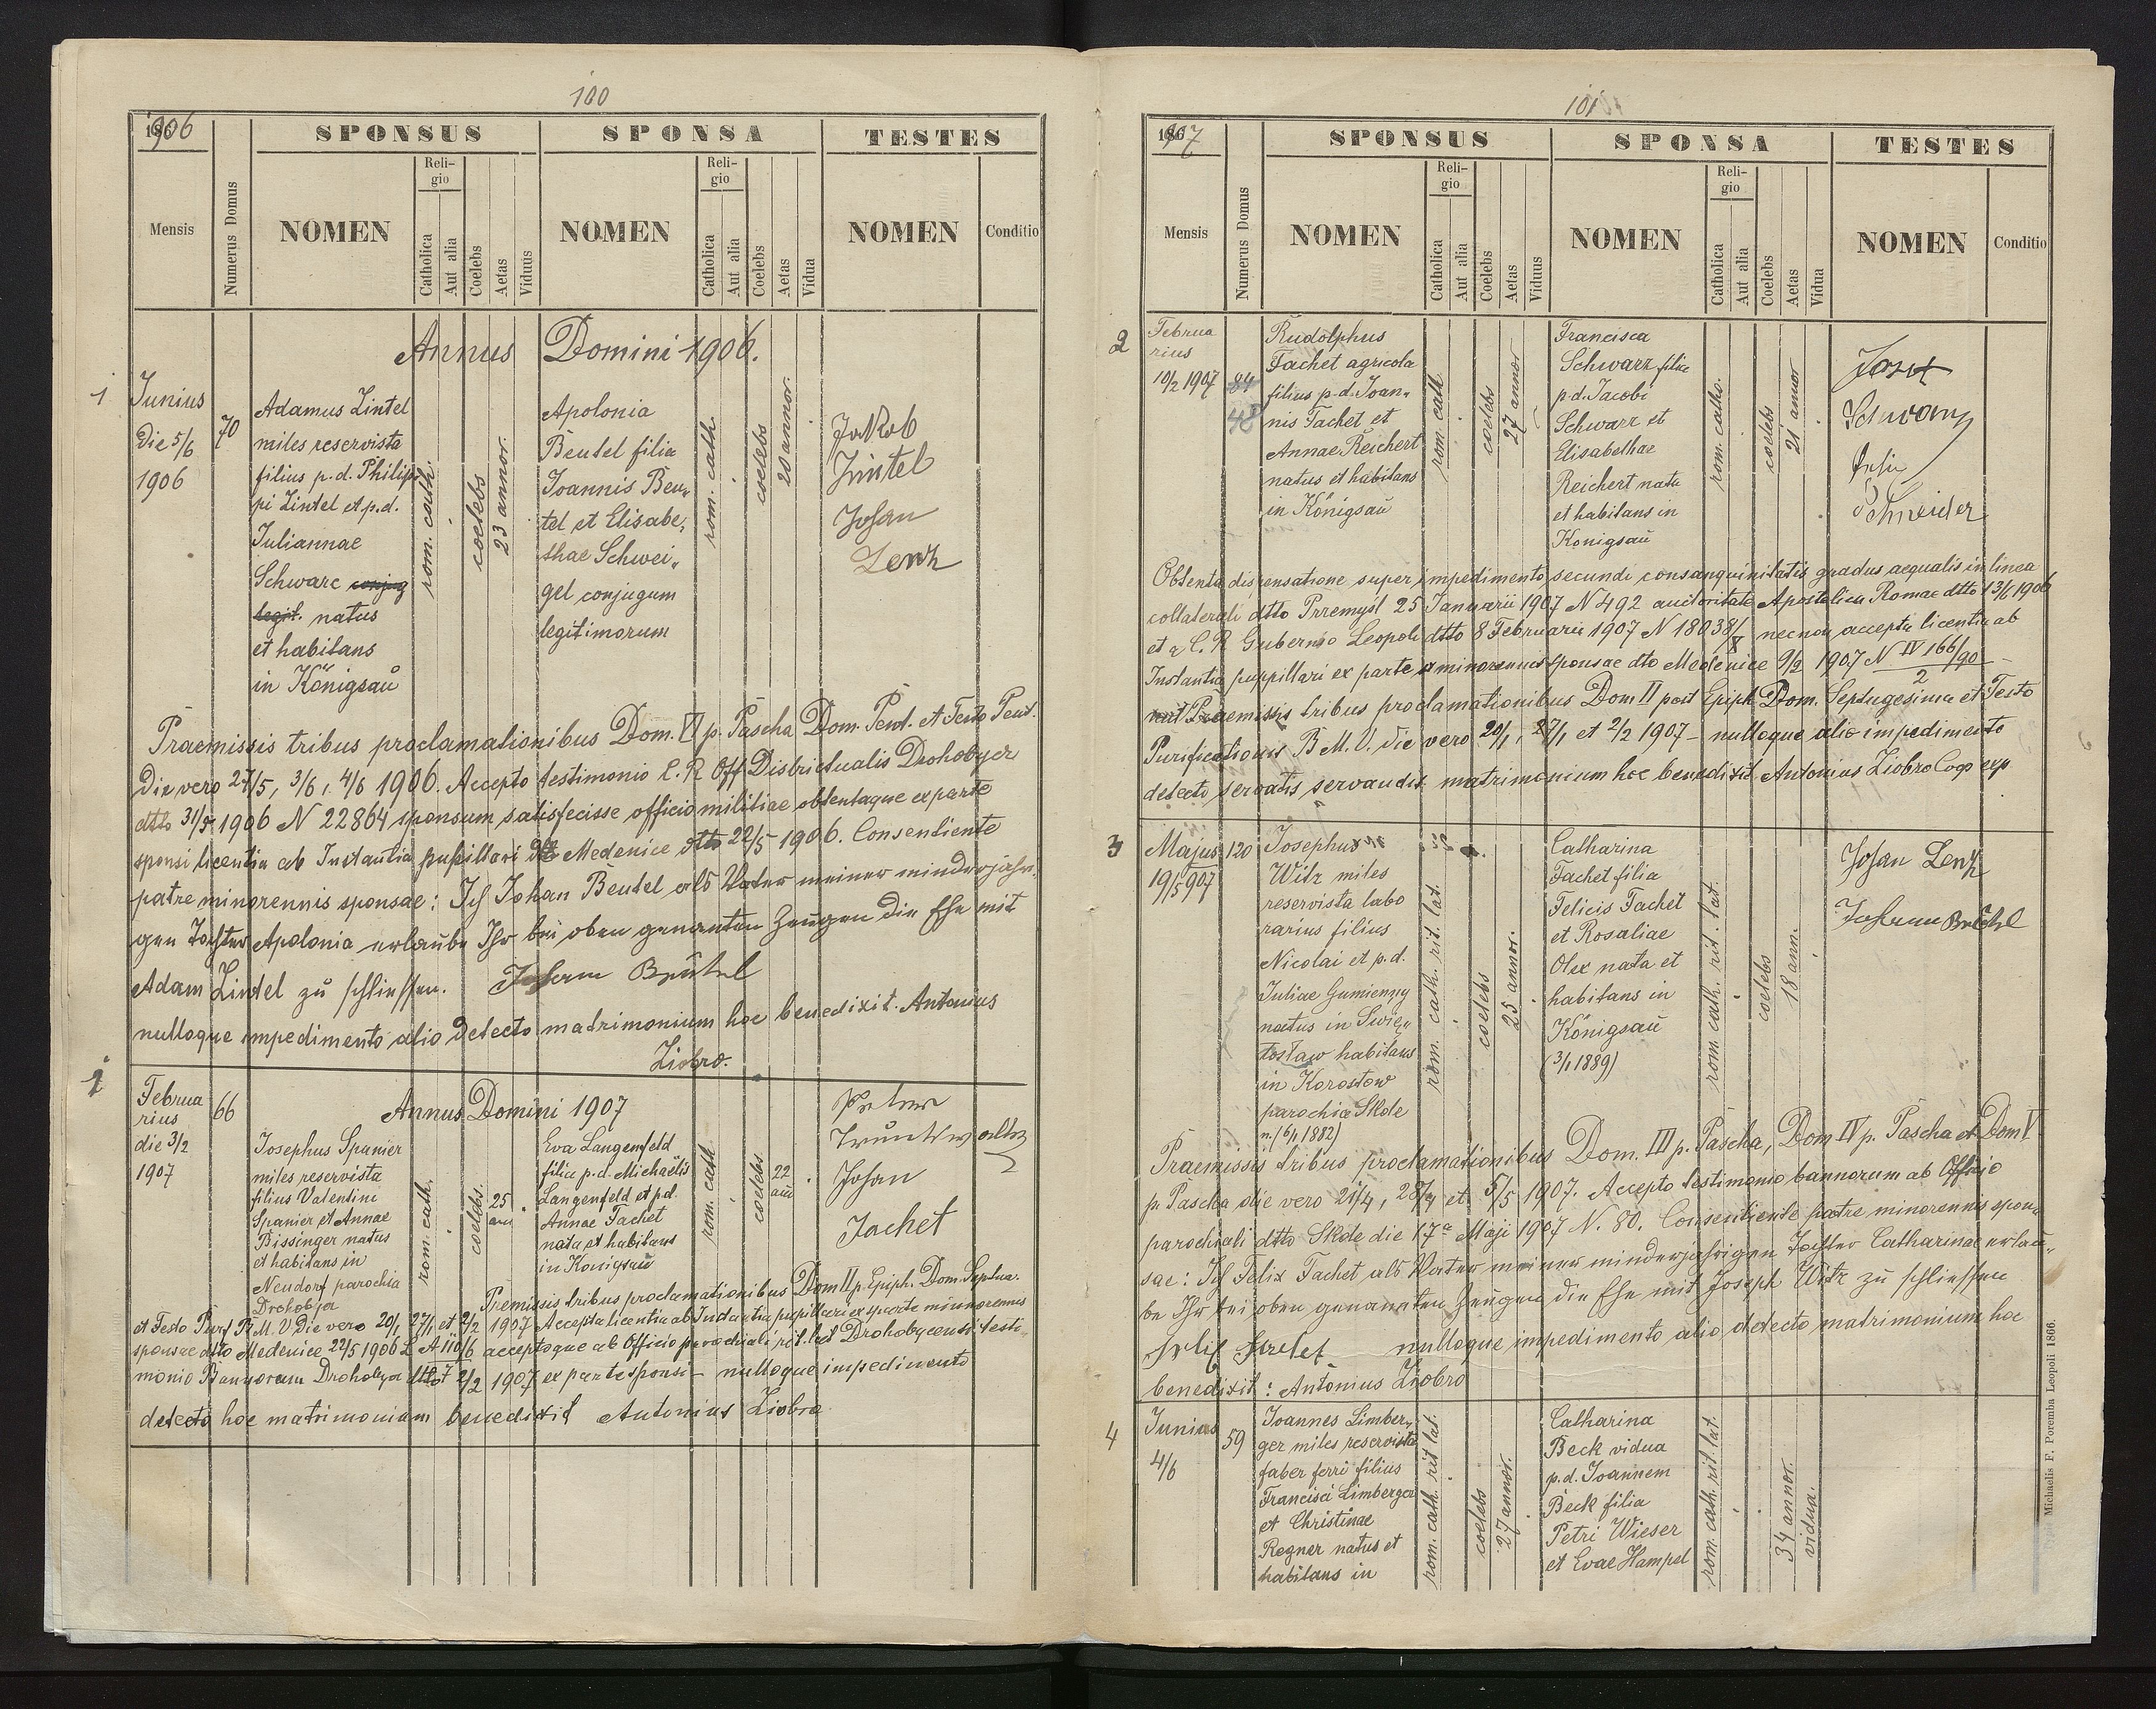 100
1906
SPONSUS
SPONSA
TESTES
Mensis
Numerus Domus
NOMEN
Religio
Catholica
Aut alia
Coelebs
Aetas
Viduus
NOMEN
Religio
Catholica
Aut alia
Coelebs
Aetas
Vidua
NOMEN
Conditio
Annus Domini 1906.
1
Junius
die 5/6
1906
70
Adamus Zintel
miles reservista
filius p.d. Philip-
pi Zintel et p.d.
Juliannae
Schwarc conjug
legit. natus
et habitans
in Königsaŭ
rom. cath.
coelebs
23 annor.
Apolonia
Beutel filia
Joannis Beu-
tel et Elisabe-
thae Schwei-
gel conjugum
legitimorum
rom. cath.
coelebs
20 annor.
Jakob
Zintel
Johan
Lenz
Praemissis tribus proclamationibus Dom. VI p. Pascha Dom. Pent. et Festo Pent.
die vero 27/5, 3/6, 4/6 1906. Accepto testimonio C.R. Off. Districtualis Drohobycz
dtto 31/5 1906 N 22864 sponsum satisfecisse officio militiae obtentaque ex parte
sponsi licentia ab Instantia pupillari Medenice dtto 22/5 1906. Consentiente
patre minorennis sponsae: Ich Johan Beutel als Vater meiner minderjähri-
gen Tochter Apolonia erlaube Ihr bei oben genanten Zeugen die Ehe mit
Adam Zintel zŭ schliessen. Johann Beŭtel
nulloque impedimento alio detecto matrimonium hoc benedixit. Antonius
Ziobro.
1
Februa
rius
die 3/2
1907
66
Annus Domini 1907
Josephus Spanier
miles reservista
filius Valentini
Spanier et Annae
Bissinger natus
et habitans in
Neudorf parochia
Drohobycz
rom. cath.
coelebs.
25
ann
Eva Langenfeld
filia p.d. Michaëlis
Langenfeld et p.d.
Annae Tachet
nata et habitans
in Königsaŭ
rom. cath
coelebs
22
ann
Peter
Johan
Tachet
Premissis tribus proclamationibus Dom II p. Epiph. Dom. Septua.
et Festo Purif B.M.V die vero 20/1, 27/1 et 2/2 1907 Accepta licentia ab Instantia pupillari ex parte minorennis
sponsae dtto Medenice 22/5 1906 acceptoque ab Officio parochiali rit. lat Drohobycensi testi-
monio Bannorum Drohobycz dtto 2/2 1907 ex parte sponsi - nulloque impedimento
detecto hoc matrimonium benedixit Antonius Ziobro
101
1907
SPONSUS
SPONSA
TESTES
Mensis
Numerus Domus
NOMEN
Religio
Catholica
Aut alia
Coelebs
Aetas
Viduus
NOMEN
Religio
Catholica
Aut alia
Coelebs
Aetas
Vidua
NOMEN
Conditio
2
Februa
rius
10/2 1907
84
48
Rudolphus
Tachet agricola
filius p.d. Joan-
nis Tachet et
Annae Reichert
natus et habitans
in Königsaŭ
rom. cath.
coelebs
27 annor
Francisca
Schwarz filia
p.d. Jacobi
Schwarz et
Elisabethae
Reichert nata
et habitans in
Königsaŭ
rom. catho.
coelebs
21 annor
Josef
Schwarz
Schneider
Obtenta dispensatione super impedimento secundi consanquinitatis gradus aequalis in linea
collaterali dtto Przemyśl 25 Januarii 1907 N 492 auctoritate Apostolica Romae dtto 13/6 1906
et a C.R. Gubernio Leopoli dtto 8 Februarii 1907 N 18038/X necnon accepta licentia ab
Instantia puppillari ex parte minorennis sponsae dto Medenice 9/2 1907 N IV 166/90 2
Praemissis tribus proclamationibus Dom II post Epiph Dom. Septugesima et Festo
Purificationis B.M.V. die vero 20/1, 27/1 et 2/2 1907 - nulloque alio impedimento
detecto servatis servandis matrimonium hoc benedixit Antonius Ziobro Coop exp
3
Majus
19/5 907
120
Josephus
Witz miles
reservista labo
rarius filius
Nicolai et p.d.
Juliae Gumienny
natus in Swię-
tosław habitans
in Korostow
parochia Skole
n. (6/1 1882)
rom. cath. rit. lat.
coelebs
25 annor.
Catharina
Tachet filia
Felicis Tachet
et Rosaliae
Olex nata et
habitans in
Königsaŭ
(3/1 1889)
rom. cath. rit. lat.
coelebs
18 ann.
Johan Lenz
Johann Beŭtel
Praemissis tribus proclamationibus Dom. III p. Pascha, Dom IV p. Pascha et Dom V
p. Pascha die vero 21/4, 28/4 et 5/5 1907. Accepto testimonio bannorum ab Officio
parochiali dtto Skole die 17a Maji 1907 N. 80. Consentiente patre minorennis spon-
sae: Ich Felix Tachet als Vater meiner minderjährigen Tochter Catharinae erlau-
be Ihr bei oben genannten Zeugen die Ehe mit Joseph Witz zŭ schliessen
nulloque impedimento alio detecto matrimonium hoc
benedixit: Antonius Ziobro
4
Junius
4/6
59
Joannes Limber-
ger miles reservista
faber ferri filius
Francisci Limberger
et Christinae
Regner natus et
habitans in
rom. cath. rit lat.
coelebs
27 annor.
Catharina
Beck vidua
p.d. Joannem
Beck filia
Petri Wieser
et Evae Hampel
rom. cath. rit. lat.
34 annor.
vidua.
Michaelis F. Poremba Leopoli 1866.